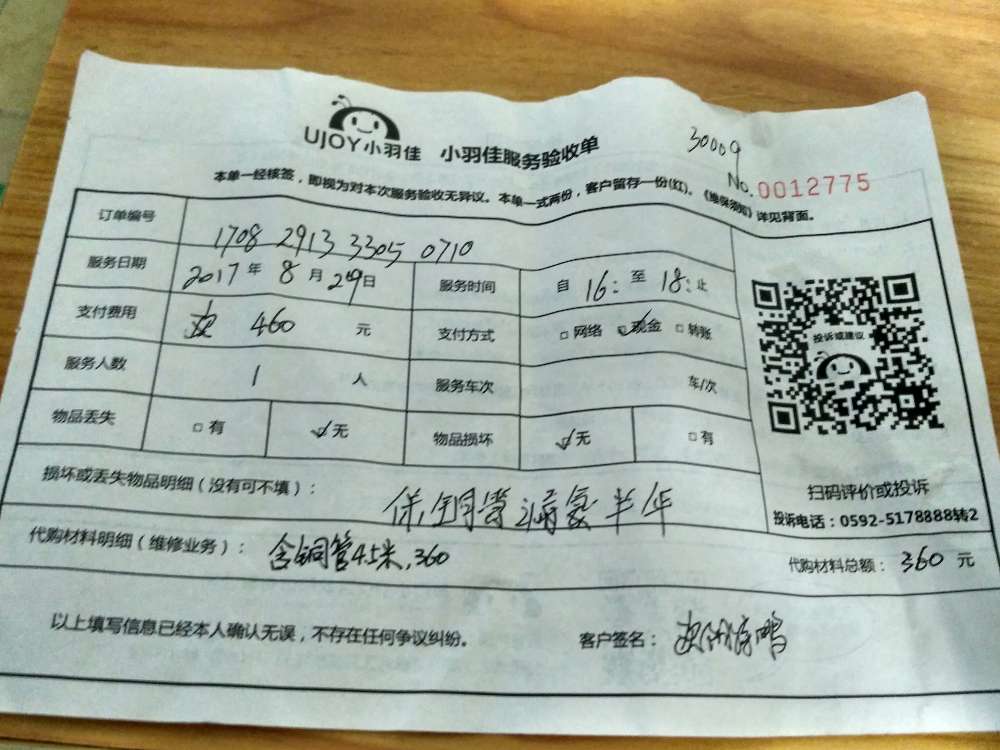 UJOY小羽佳 小羽佳服务验收单
30009
No.0012775
本单一经核签，即视为对本次服务验收无异议。本单一式两份，客户留存一份(红)。《维保须知》详见背面。
订单编号 1708 2913 3305 0710
服务日期 2017年8月29日 服务时间 自16:至18:止
支付费用 460 元 支付方式 □网络 ☑现金 □转账
服务人数 1 人 服务车次 车/次
物品丢失 □有 ☑无 物品损坏 ☑无 □有
投诉或建议
扫码评价或投诉
投诉电话：0592-5178888转2
损坏或丢失物品明细（没有可不填）：
保铜管漏氟半年
代购材料明细（维修业务）：含铜管4.5米,360
代购材料总额：360 元
以上填写信息已经本人确认无误，不存在任何争议纠纷。 客户签名：